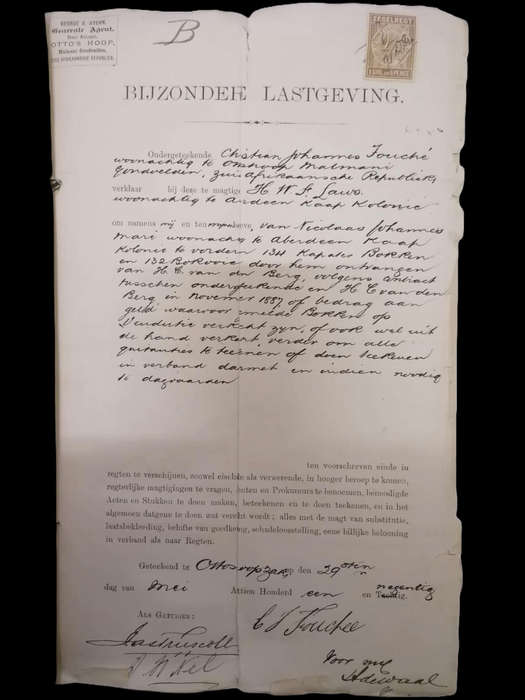 GEORGE J. AYERS,
Generale Agent,
OTTO'S HOOP,
Malmani Goudvelden,
ZUID AFRIKAANSCHE REPUBLIEK
B
ZEGELREGT
BIJZONDER LASTGEVING.
Ondergeteekende Christian Johannes Fouché
woonachtig te Ottoshoop Malmani
Goudvelden, Zuid Afrikaansche Republiek
verklaar bij deze te magtigen H W F Laws
woonachtig te Aberdeen Kaap Kolonie
om namens mij en ten mijnen behoeve, van Nicolaas Johannes
Maré woonachtig te Aberdeen Kaap
Kolonie te vorderen 1344 Kapater Bokken
en 132 Bokooie door hem ontvangen
van H C van den Berg, volgens contract
tusschen ondergetekende en H C van den
Berg in November 1887 of bedrag aan
geld waarvoor gemelde Bokken op
Vendutie verkocht zijn, of ook wel uit
de hand verkort, verder om alle
quitanties te teekenen of doen teekenen
in verband darmet en indien noodig
te dagvaarden
ten voorschreven einde in
regten te verschijnen, zoowel eischende als verweerende, in hooger beroep te komen,
regterlijke magtigingen te vragen, Agenten en Prokureurs te benoemen, benoodigde
Acten en Stukken te doen maken, beteekenen en te doen teekenen, en in het
algemeen datgene te doen wat vereischt wordt; alles met de magt van substitutie,
lastsbekleeding, belofte van goedkeuring, schadeloosstelling, eene billijke belooning
in verband als naar Regten.
Geteekend te Ottoshoop Z.A.R. op den 29sten
dag van Mei Achtien Honderd een en negentig
Tachtig.
ALS GETUIGEN:
C J Fouchee
Jas Truscott
Voor mij